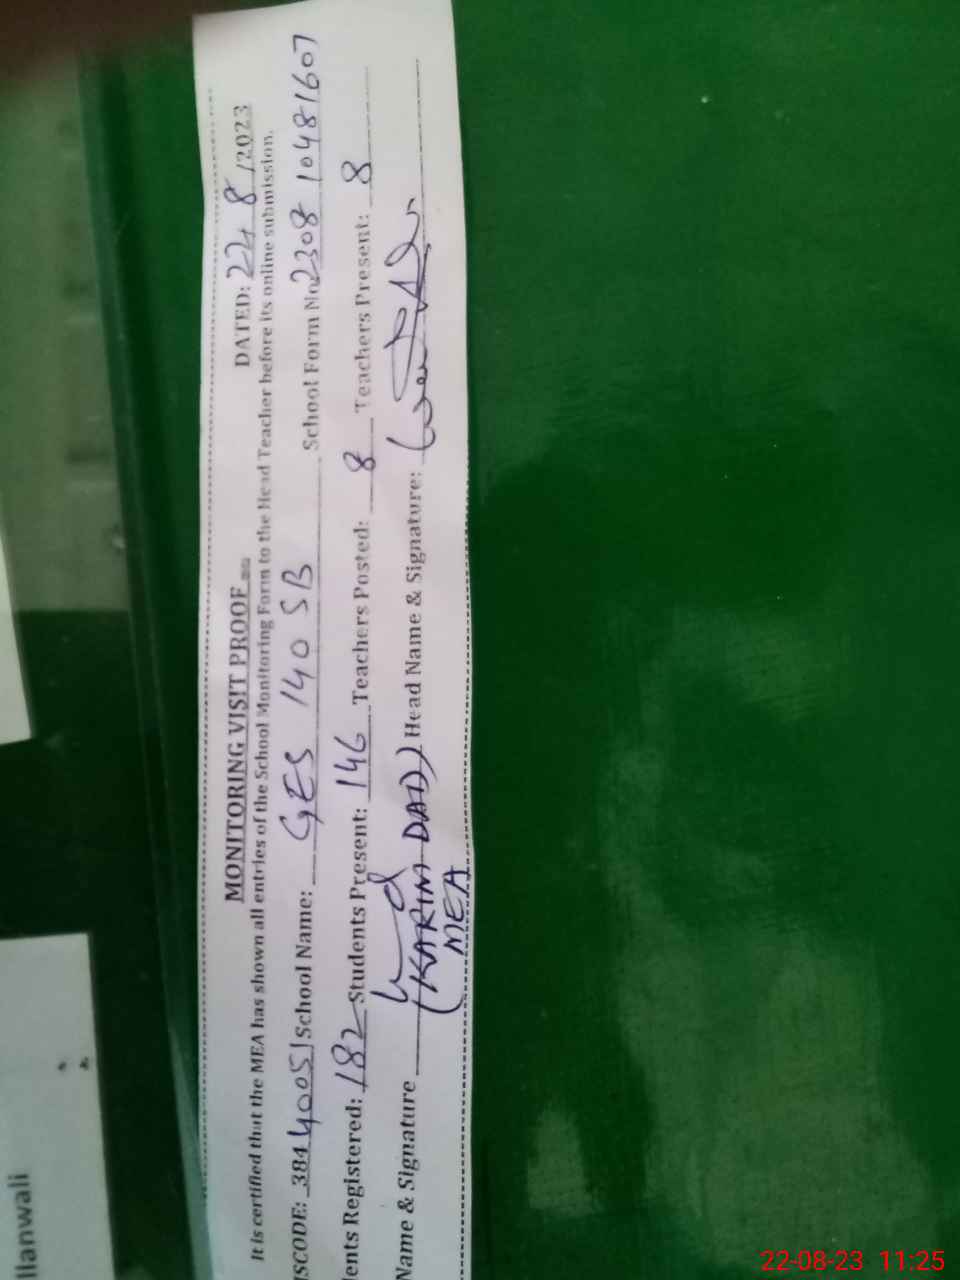 MONITORING VISIT PROOF DATED: 22 8 /2023
It is certified that the MEA has shown all entries of the School Monitoring Form to the Head Teacher before its online submission.
ISCODE: 38440051 School Name: GES 140 SB School Form No 2308 10481607
ents Registered: 182 Students Present: 146 Teachers Posted: 8 Teachers Present: 8
Name & Signature (KARIM DAD) Head Name & Signature:
MEA
llanwali
22-08-23 11:25